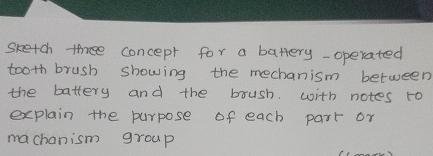 Sketch three concept for a battery-operated
tooth brush showing the mechanism between
the battery and the brush. with notes to
explain the purpose of each part or
machanism group